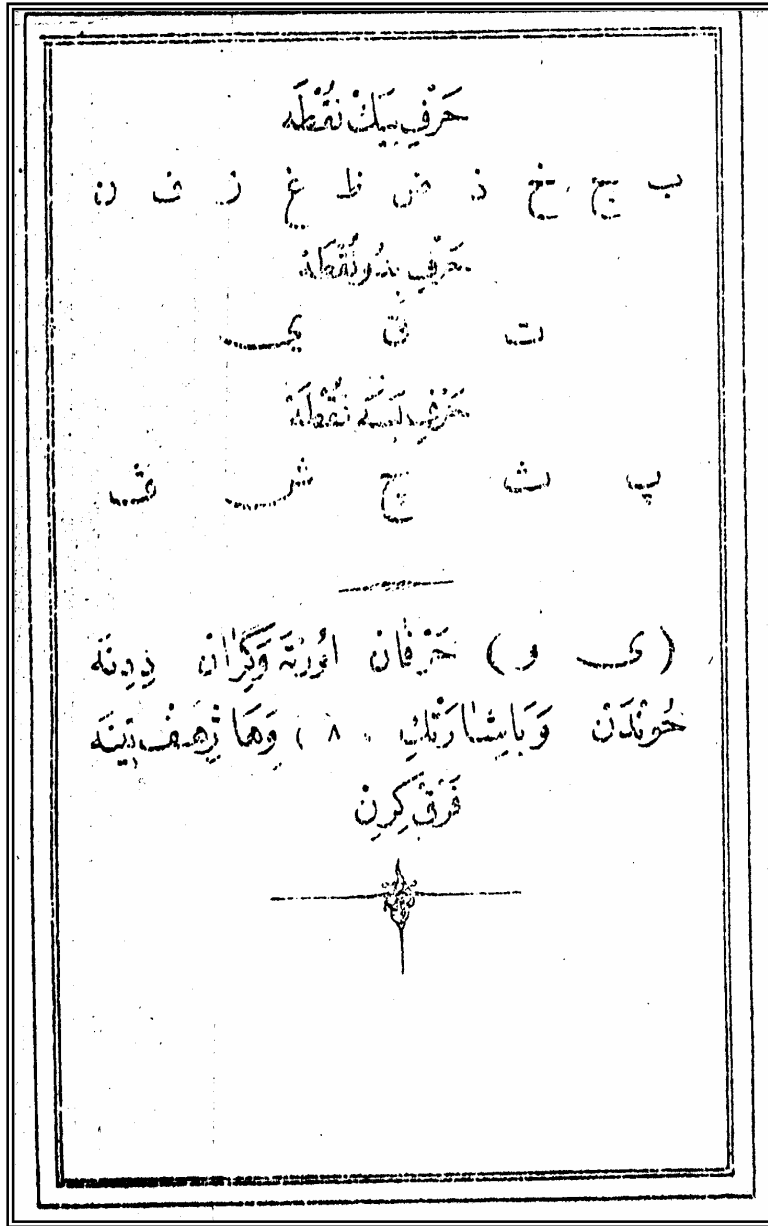 حَرْفِ بِيَكْ نُقْطَه
ب ج خ ذ ض ظ غ ز ف ن
حَرْفِ بِدُو نُقْطَه
ت ق ي
حَرْفِ بَسَه نُقْطَه
پ ث چ ش ڤ
(ى و) حَرْفَان اوُرتَه وَگِرَان دِدِنَه
خُونْدَنْ وَبَاِشَارَتْكِ ( ٨ ) وَهَا ژِهَڤ
فَرْقْ كِرِنْ